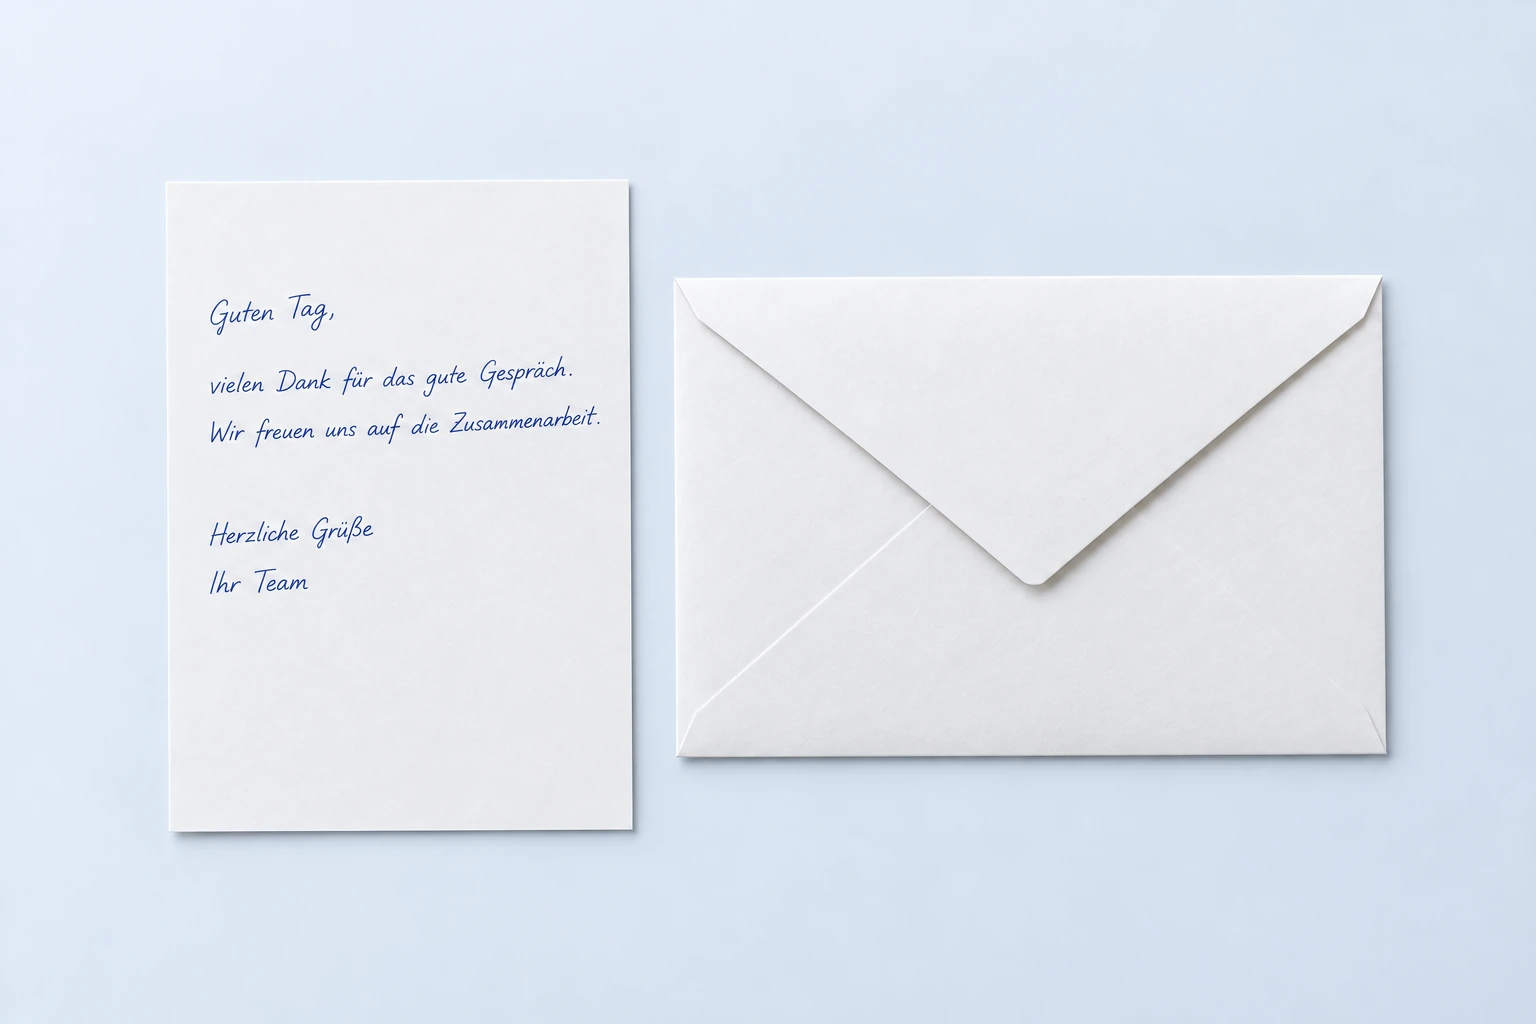 Guten Tag,
vielen Dank für das gute Gespräch.
Wir freuen uns auf die Zusammenarbeit.
Herzliche Grüße
Ihr Team